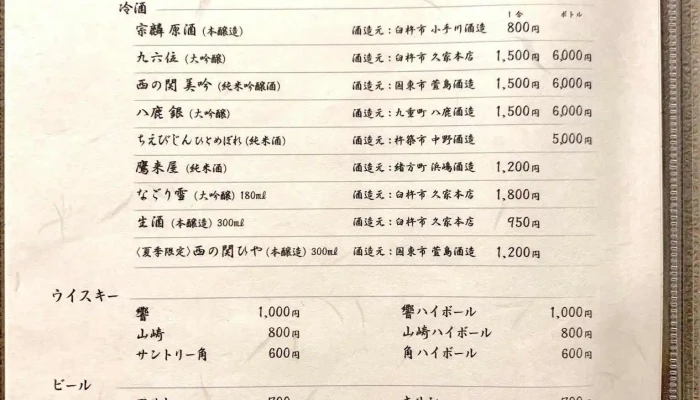 冷酒
1合 ボトル
宗麟 原酒 (本醸造) 酒造元:臼杵市 小手川酒造 800円
九六位 (大吟醸) 酒造元:臼杵市 久家本店 1,500円 6,000円
西の関 美吟 (純米吟醸酒) 酒造元:国東市 萱島酒造 1,500円 6,000円
八鹿 銀 (大吟醸) 酒造元:九重町 八鹿酒造 1,500円 6,000円
ちえびじん ひとめぼれ (純米酒) 酒造元:杵築市 中野酒造 5,000円
鷹来屋 (純米酒) 酒造元:緒方町 浜嶋酒造 1,200円
なごり雪 (大吟醸) 180mℓ 酒造元:臼杵市 久家本店 1,800円
生酒 (本醸造) 300mℓ 酒造元:臼杵市 久家本店 950円
〈夏季限定〉西の関ひや (本醸造) 300mℓ 酒造元:国東市 萱島酒造 1,200円
ウイスキー
響 1,000円 響ハイボール 1,000円
山崎 800円 山崎ハイボール 800円
サントリー角 600円 角ハイボール 600円
ビール